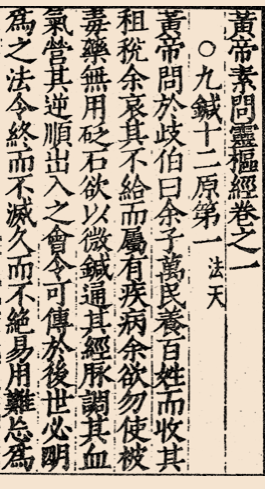 黃帝素問靈樞經卷之一
○九鍼十二原第一 法天
黃帝問於歧伯曰余子萬民養百姓而收其
租稅余哀其不給而屬有疾病余欲勿使被
毒藥無用砭石欲以微鍼通其經脉調其血
氣營其逆順出入之會令可傳於後世必明
為之法令終而不滅久而不絕易用難忘為